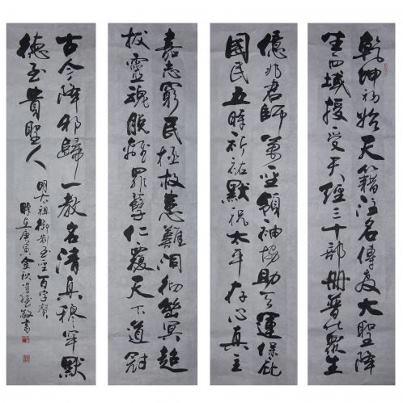 乾坤初始天籍注名傳教大聖降
生西域授受天經三十部冊普化眾生
億兆君師萬聖領袖協助天運保庇
國民五時祈祐默祝太平存心真主
嘉志窮民拯救患難洞徹幽冥超
拔靈魂脫離罪孽仁覆天下道冠
古今降邪歸一教名清真穆罕默
德至貴聖人
明太祖御制至聖百字讚
庚寅金秋敬書